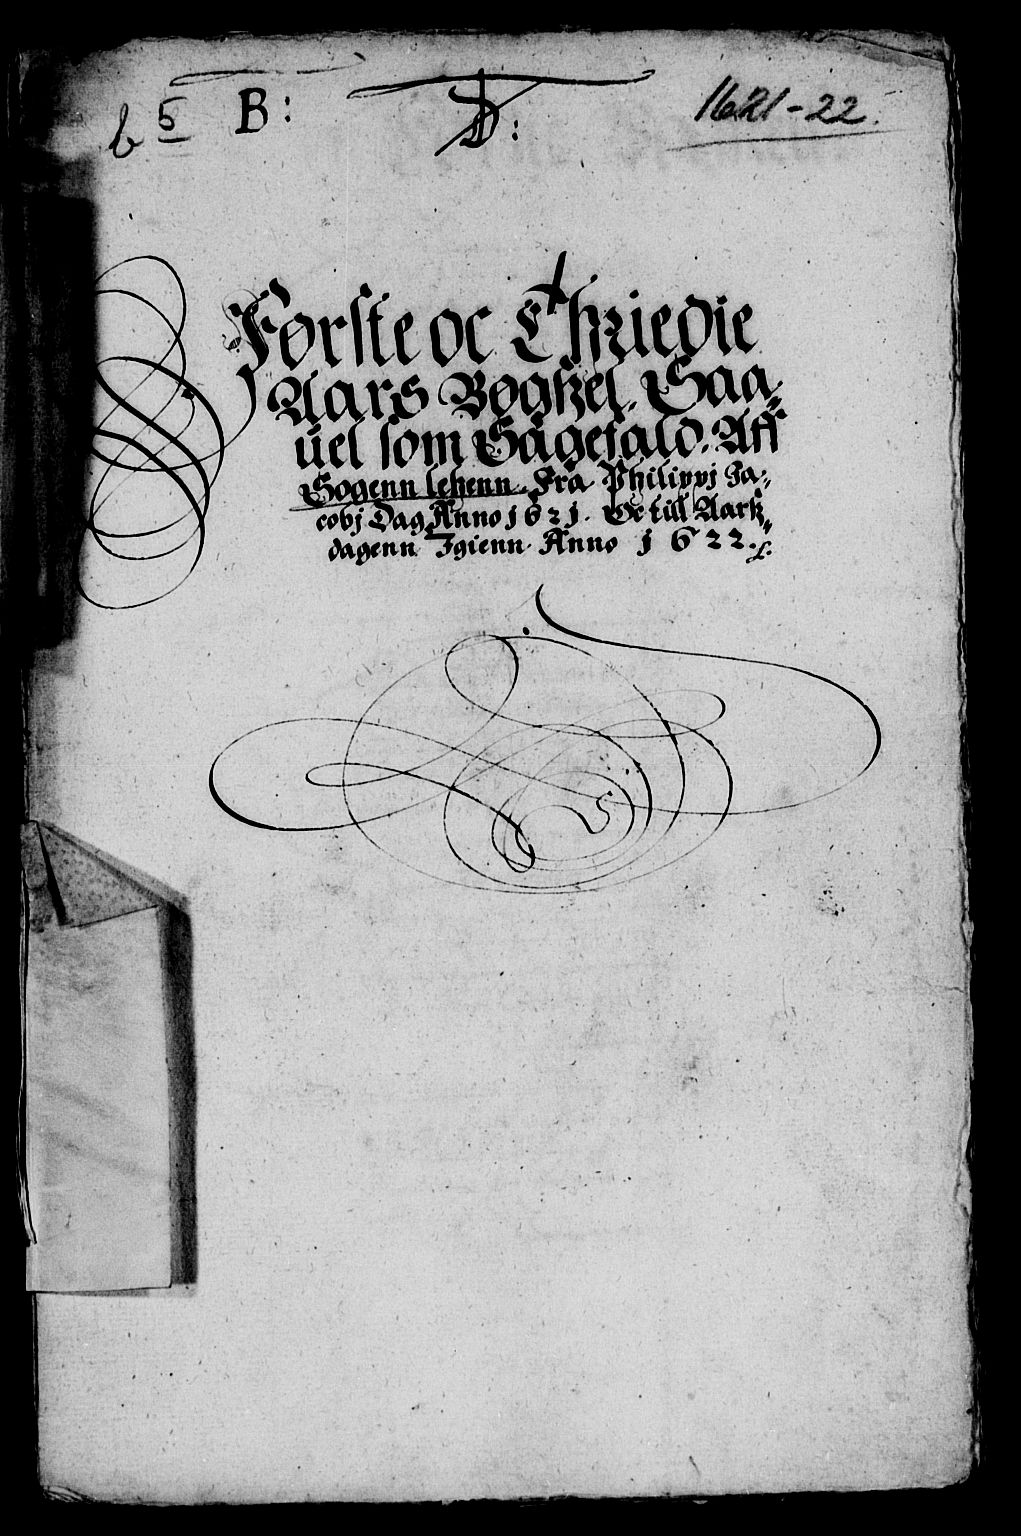 b 5 B: D:
1621-22.
Førſte oc Thriedie
Aars Bøgßel. Saa-
uel ſom Sagefald. Aff
Sogenn lehenn. Fra Philippj Ja-
cobj Dag Anno 1621. Oc till Aarß-
dagenn Igienn Anno 1622.